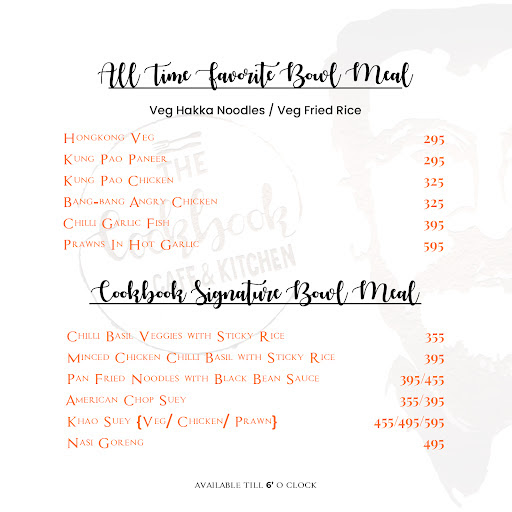 All Time Favorite Bowl Meal
Veg Hakka Noodles / Veg Fried Rice
Hongkong Veg 295
Kung Pao Paneer 295
Kung Pao Chicken 325
Bang-bang Angry Chicken 325
Chilli Garlic Fish 395
Prawns In Hot Garlic 595
THE
Cookbook
CAFE & KITCHEN
Cookbook Signature Bowl Meal
Chilli Basil Veggies with Sticky Rice 355
Minced Chicken Chilli Basil with Sticky Rice 395
Pan Fried Noodles with Black Bean Sauce 395/455
American Chop Suey 355/395
Khao Suey {Veg/ Chicken/ Prawn} 455/495/595
Nasi Goreng 495
AVAILABLE TILL 6' O CLOCK